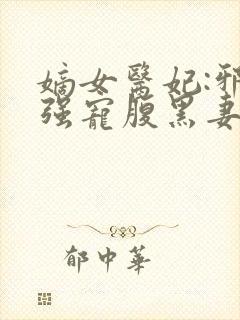 嫡女醫妃:邪
强寵腹黑妻
郁中華